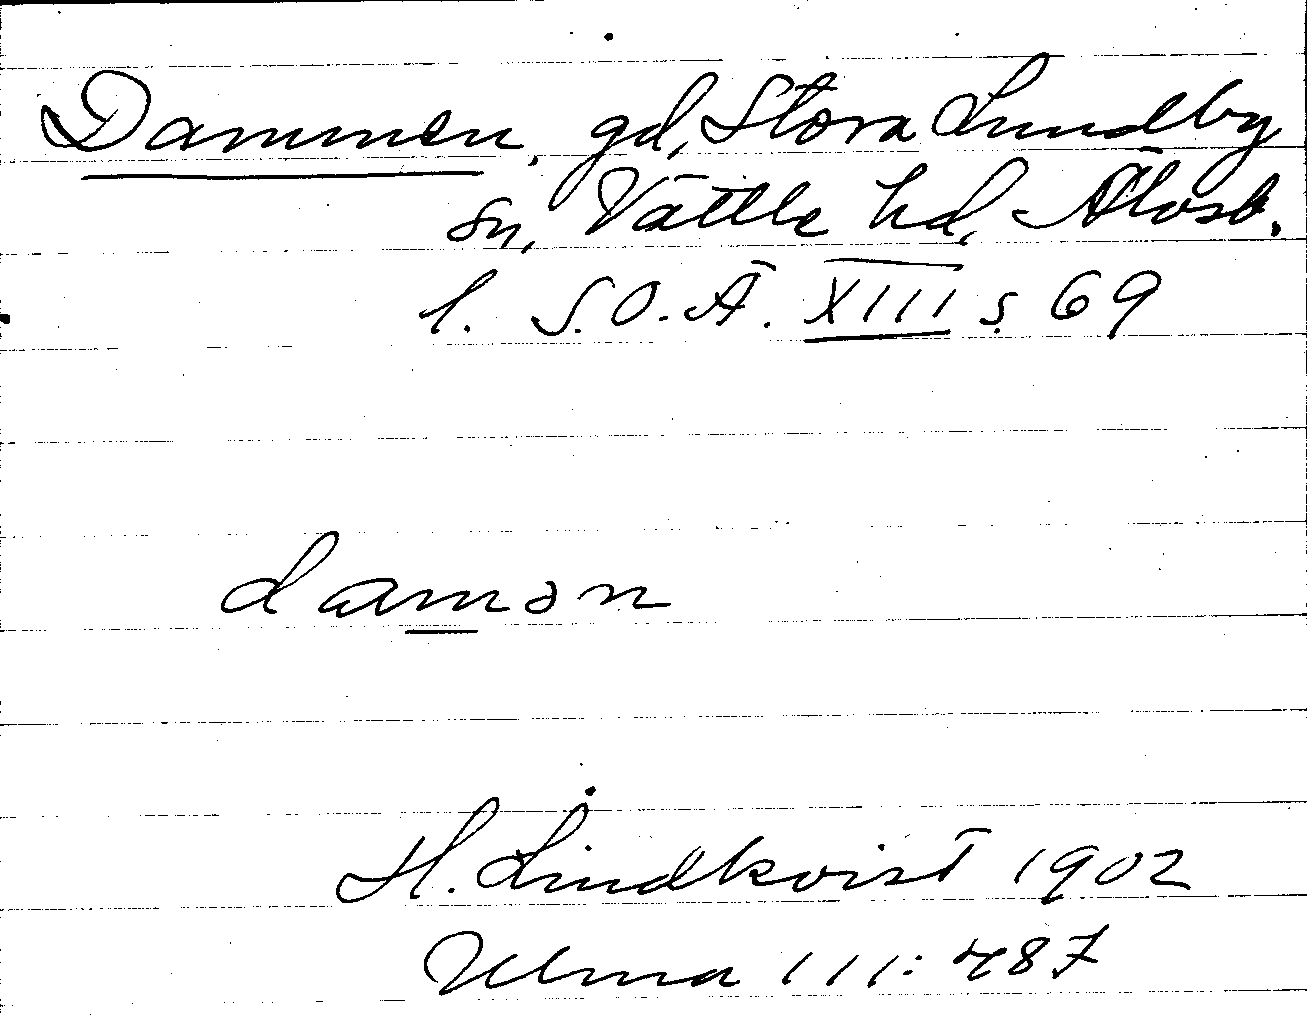 Dammen, gd, Stora Lundby
sn, Vättle hd, Älvsb.
l. S.O.Ä. XIII s. 69
damən
H. Lindkvist 1902
Ulma 111:487